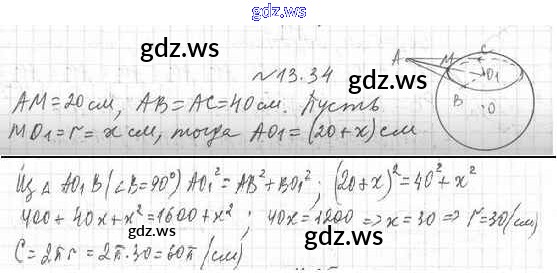 gdz.ws
№13.34
gdz.ws gdz.ws
A M C O1 B O
AM=20см, AB=AC=40см. Пусть
MO1=r=x см, тогда AO1=(20+x)см
Из △ AO1B(∠B=90°) AO1²=AB²+BO1²; (20+x)²=40²+x²
400+40x+x²=1600+x²; 40x=1200=>x=30=>r=30(см)
C=2πr=2π·30=60π(см)
gdz.ws gdz.ws